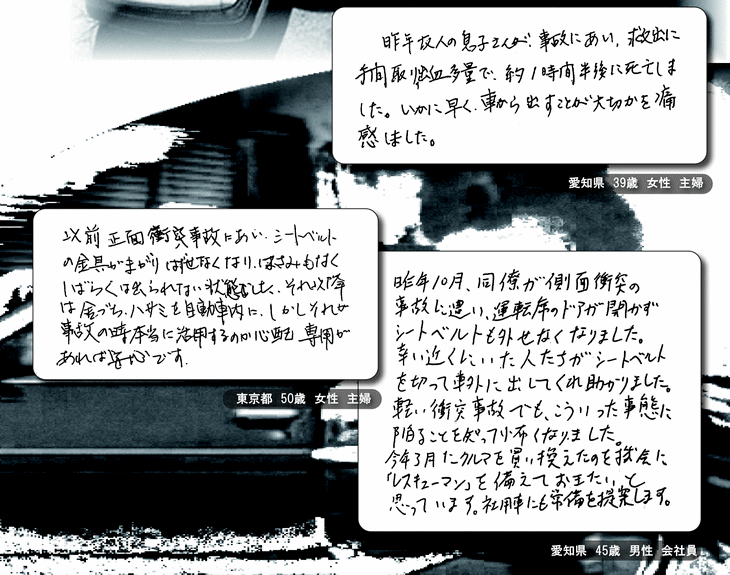 昨年友人の息子さんが、事故にあい、救出に
手間取り出血多量で、約1時間半後に死亡しま
した。いかに早く、車から出すことが大切かを痛
感しました。
愛知県 39歳 女性 主婦
以前正面衝突事故にあい、シートベルト
の金具がまがりはずせなくなり、はさみもなく
しばらくは出られない状態でした。それ以降
は金づち、ハサミを自動車内に、しかしそれが
事故の時本当に活用するのか心配 専用が
あれば安心です。
東京都 50歳 女性 主婦
昨年10月、同僚が側面衝突の
事故に遭い、運転席のドアが開かず
シートベルトも外せなくなりました。
幸い近くにいた人たちがシートベルト
を切って車外に出してくれ助かりました。
軽い衝突事故でも、こういった事態に
陥ることを知って怖くなりました。
今年3月にクルマを買い換えたのを機会に
「レスキューマン」を備えておきたいと
思っています。社用車にも常備を提案します。
愛知県 45歳 男性 会社員